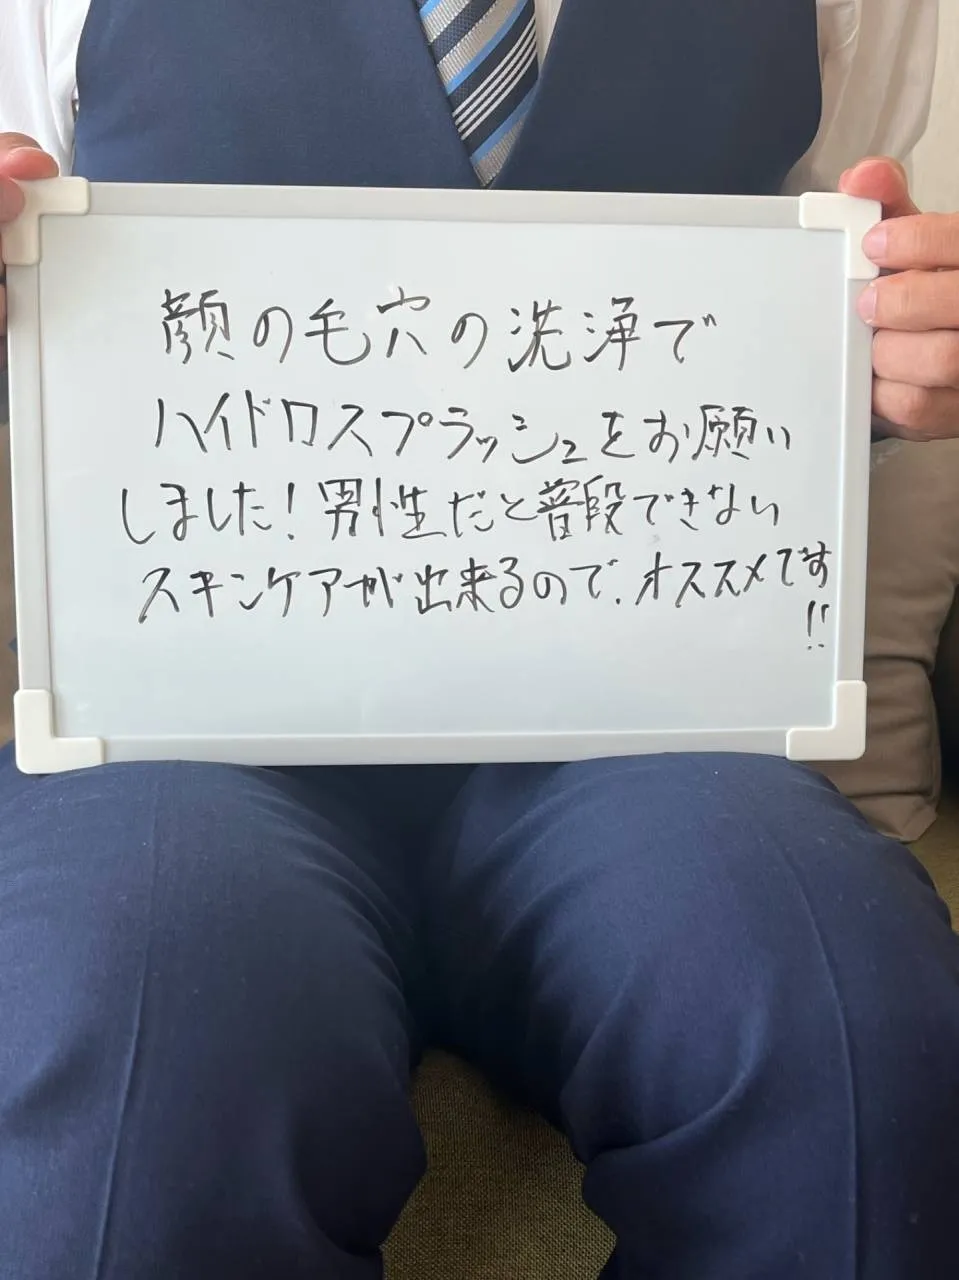 顔の毛穴の洗浄で
ハイドロスプラッシュをお願い
しました!男性だと普段できない
スキンケアが出来るので、オススメです
!!